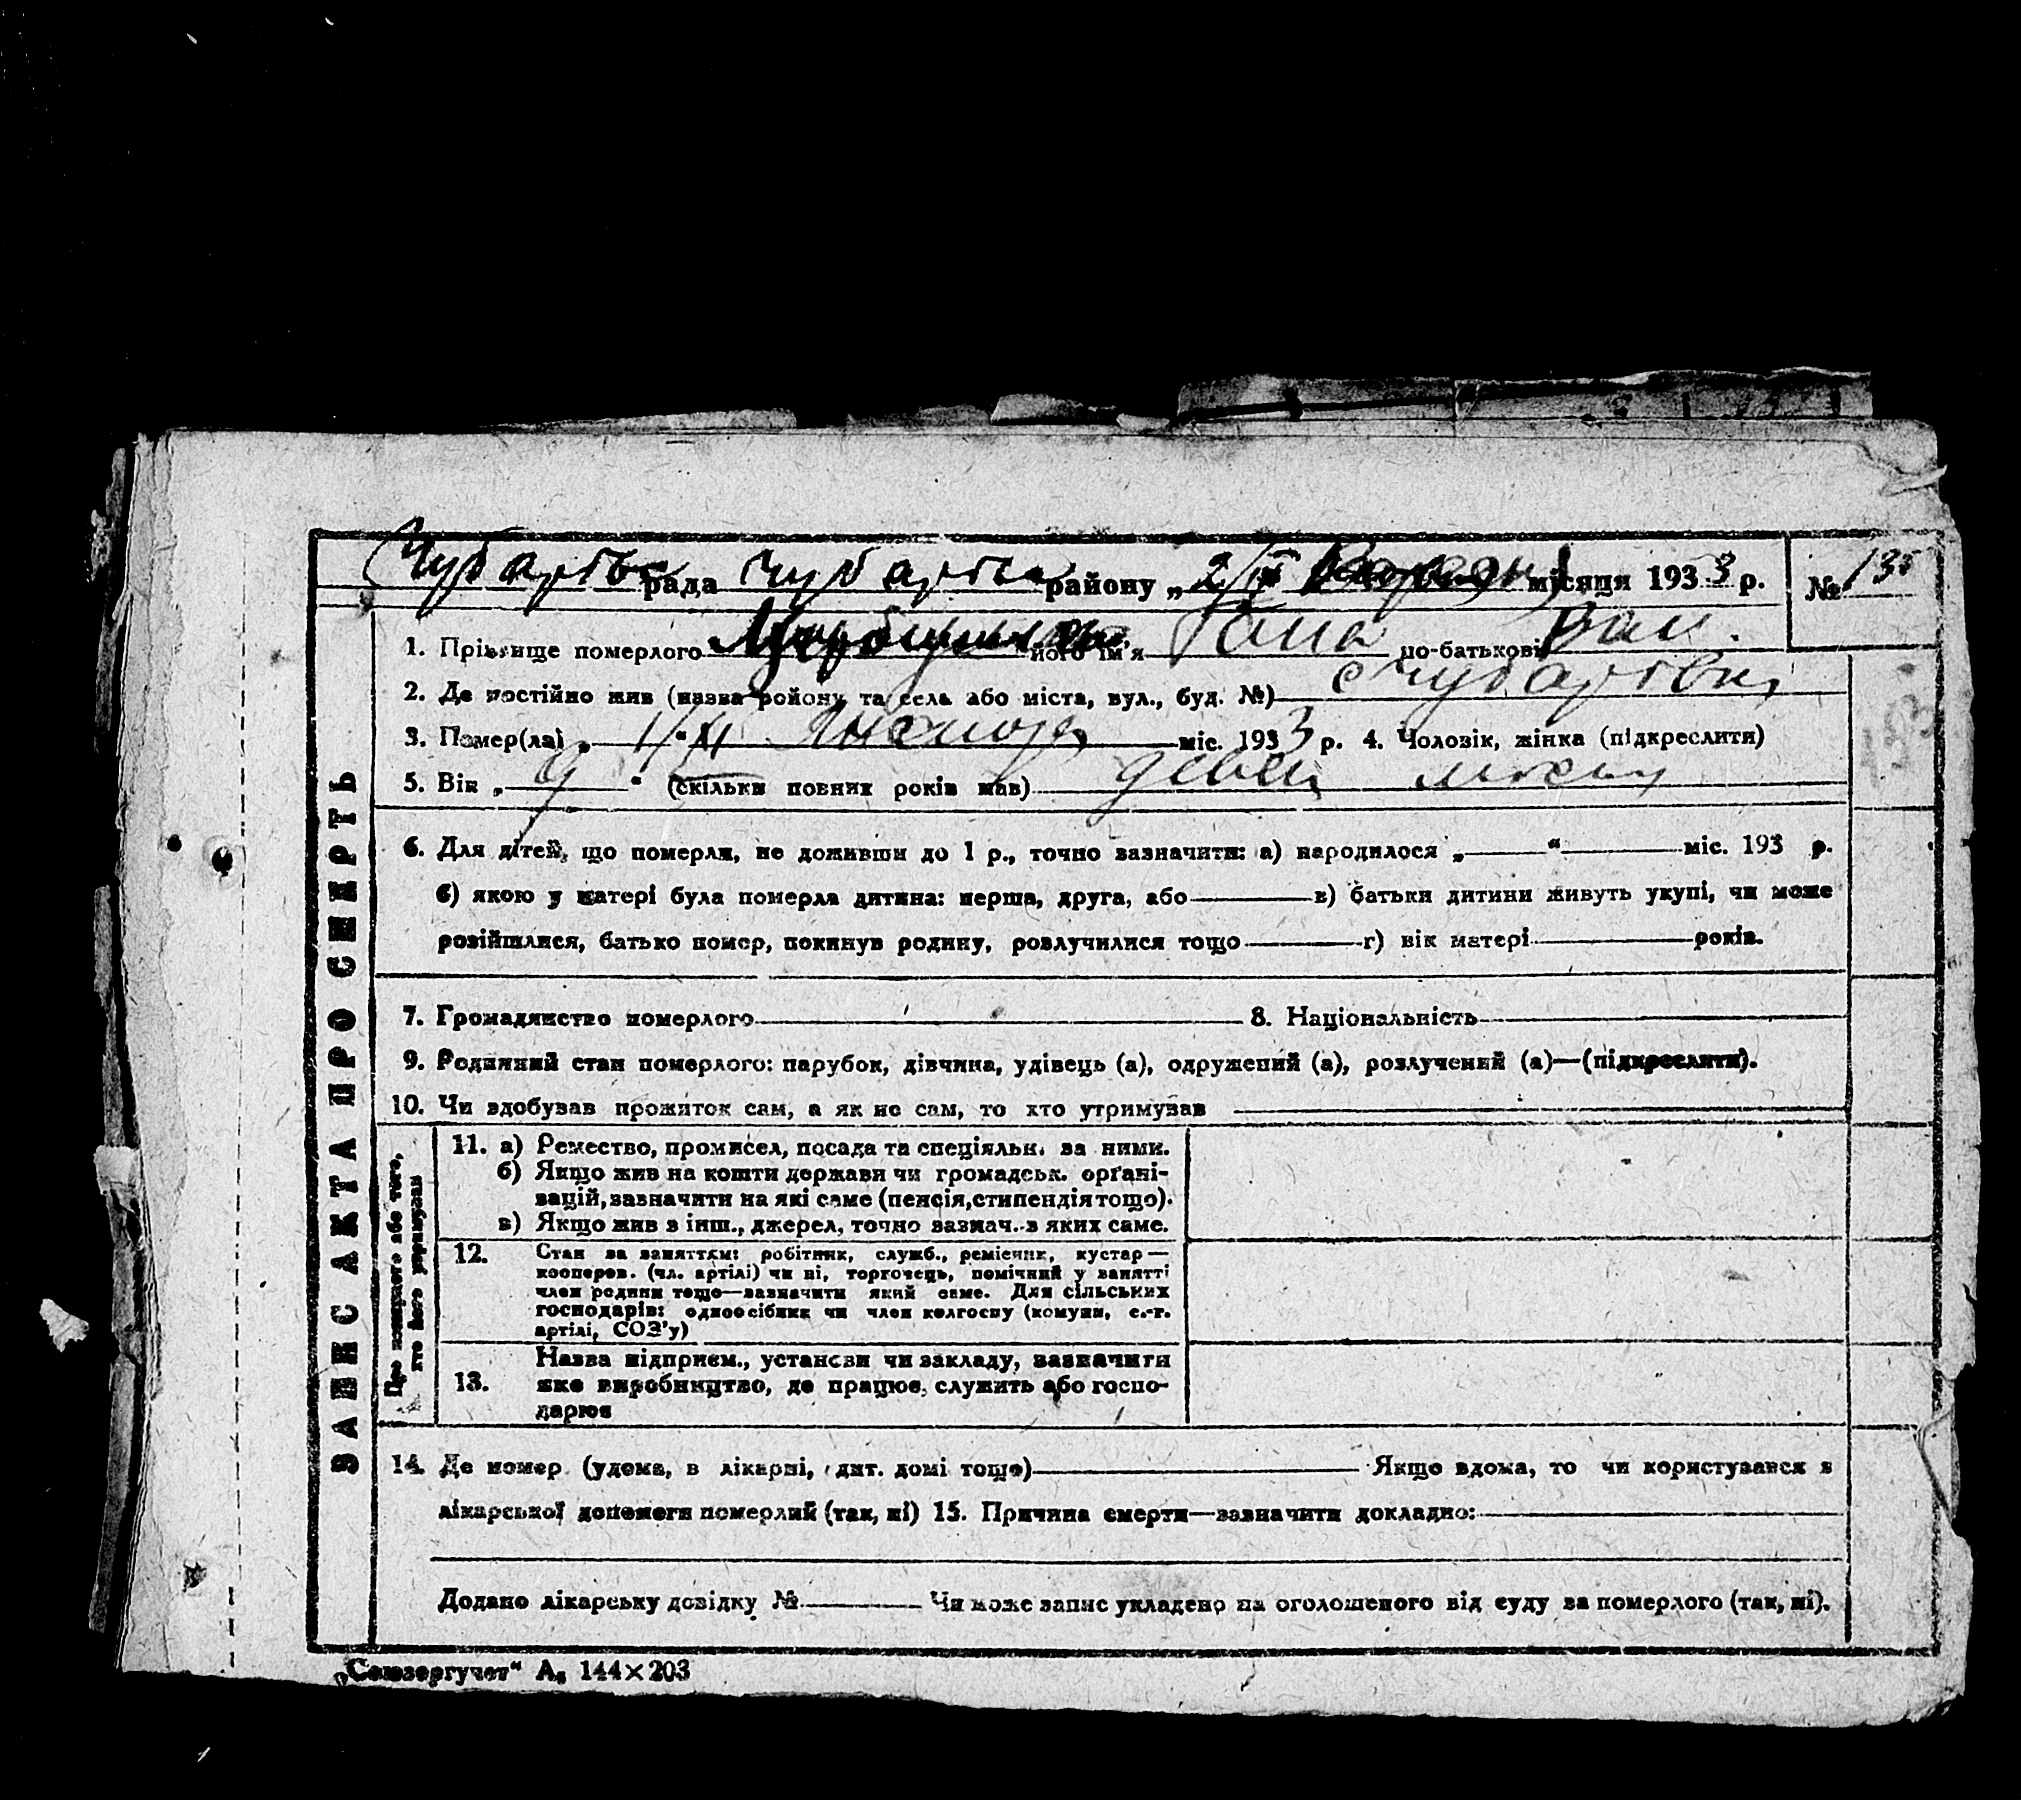 Чубарівс рада Чубарівс району „2/ місяця 1933 р. № 135
1. Прізвище померлого його ім'я Гана по-батькові Ван.
2. Де постійно жив (назва району та села або міста, вул., буд. №) с Чубарівка
3. Помер(ла) „ “ міс. 1933 р. 4. Чоловік, жінка (підкреслити)
5. Вік „ 9 “ (скільки повних років мав) девять
6. Для дітей, що померли, не доживши до 1 р., точно зазначити: а) народилося „ “ міс. 193 р.
б) якою у матері була померла дитина: перша, друга, або в) батьки дитини живуть укупі, чи може
розійшлися, батько помер, покинув родину, розлучилися тощо г) вік матері років.
7. Громадянство померлого 8. Національність
9. Родинний стан померлого: парубок, дівчина, удівець (а), одружений (а), розлучений (а)—(підкреслити).
10. Чи здобував прожиток сам, а як не сам, то хто утримував
ЗАПИС АКТА ПРО СМЕРТЬ
Про померлого або того,
хто його утримував
11. а) Ремество, промисел, посада та спеціяльн. за ними.
б) Якщо жив на кошти держави чи громадськ. органі-
зацій, зазначити на які саме (пенсія, стипендія тощо).
в) Якщо жив з інш., джерел, точно зазнач. з яких саме.
12. Стан за заняттям: робітник, служб., ремісник, кустар—
кооперов. (чл. артілі) чи ні, торговець, помічний у занятті
член родини тощо—зазначити який саме. Для сільських
господарів: одноосібник чи член колгоспу (комуни, с.-г.
артілі, СОЗ'у)
Назва підприєм., установи чи закладу, зазначити
13. яке виробництво, де працює, служить або госпо-
дарює
14. Де помер (удома, в лікарні, дит. домі тощо) Якщо вдома, то чи користувався з
лікарської допомоги померлий (так, ні) 15. Причина смерти—зазначити докладно:
Додано лікарську довідку № Чи може запис укладено на оголошеного від суду за померлого (так, ні).
„Союзоргучет“ А₅ 144×203